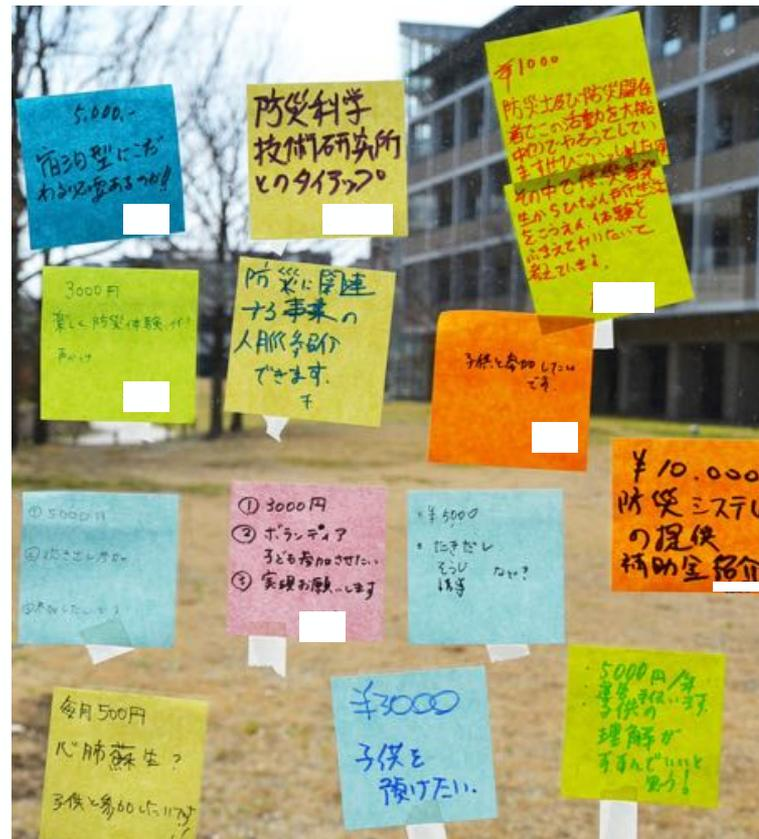 5,000.-
宿泊型にこだ
わる必要あるのか!!
防災科学
技術研究所
とのタイアップ
¥1000
防災士及び防災関係
者でこの活動を大船
中のでやろうとしてい
その中で
をこうえん、体験を
ふまえてやりたいと
考えています。
3000円
楽しく防災体験
声かけ
防災に関連
する事業の
人脈紹介
できます。
子供と参加したい
です。
¥10.000
防災システム
の提供
補助金紹介
①5000円
②炊き出し参加
③参加したいです
①3000円
②ボランティア
子ども参加させたい
③実現お願いします
・¥5000
・たきだし
そうじ
誘導 など?
毎月500円
心肺蘇生?
子供と参加したいです
¥3000
子供を
預けたい.
5000円/年
運営手伝います.
子供の
理解が
すすんでいいと
思う!